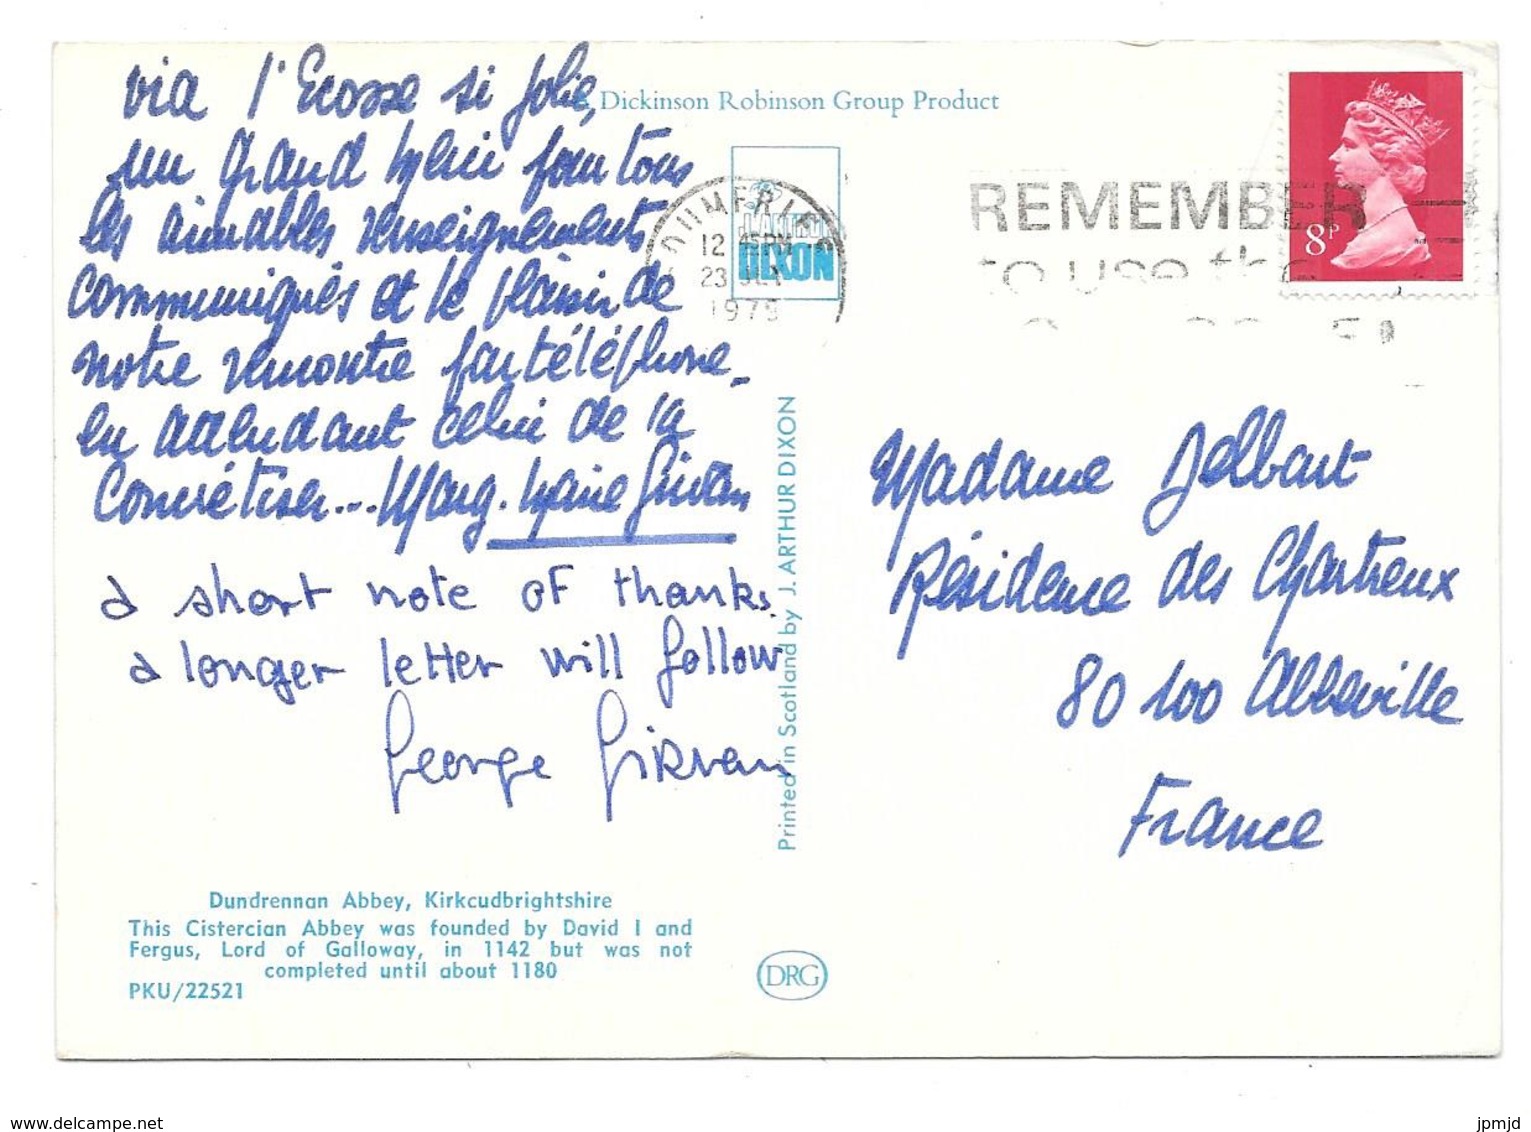 via l'Ecosse si jolie,
un grand merci pour tous
les aimables renseignements
communiqués et le plaisir de
notre rencontre par téléphone_
en attendant celui de la
concrétiser... Marg. Marie Girvan
a short note of thanks.
a longer letter will follow
George Girvan
Dundrennan Abbey, Kirkcudbrightshire
This Cistercian Abbey was founded by David I and
Fergus, Lord of Galloway, in 1142 but was not
completed until about 1180
PKU/22521
A Dickinson Robinson Group Product
DUMFRIES
12 45PM
23
1975
DIXON
Printed in Scotland by J. ARTHUR DIXON
DRG
REMEMBER
to use the
8P
Madame Delbart
Résidence des Chartreux
80100 Abbeville
France
www.delcampe.net
jpmjd